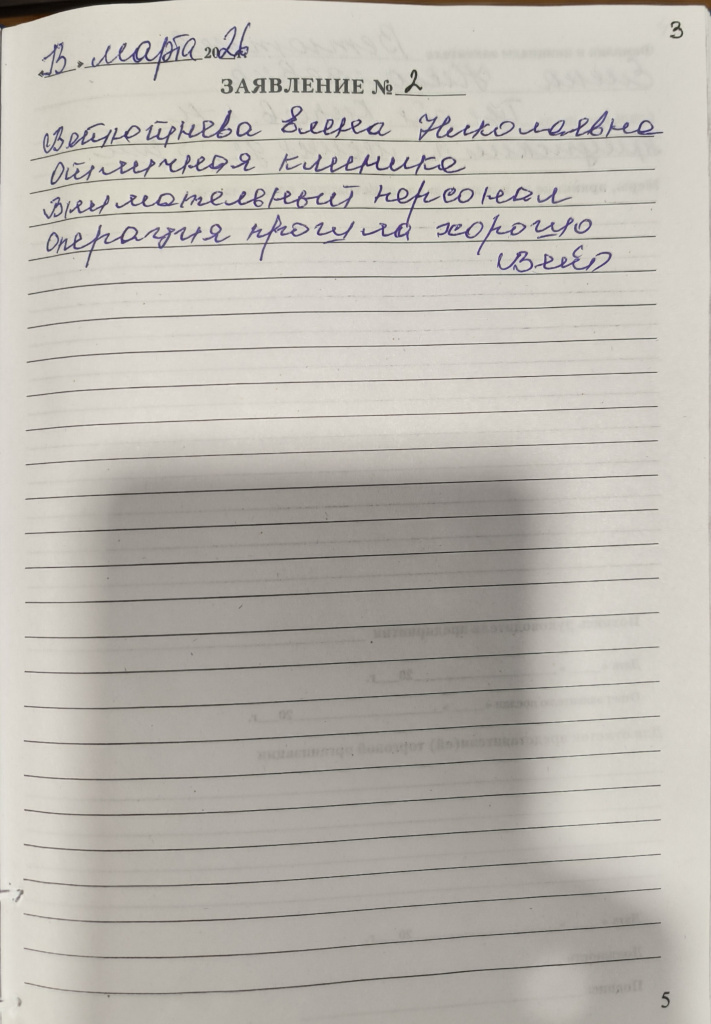 3
13 марта 2026
ЗАЯВЛЕНИЕ № 2
Ветютнева Елена Николаевна
Отличная клиника
Внимательный персонал
Операция прошла хорошо
5